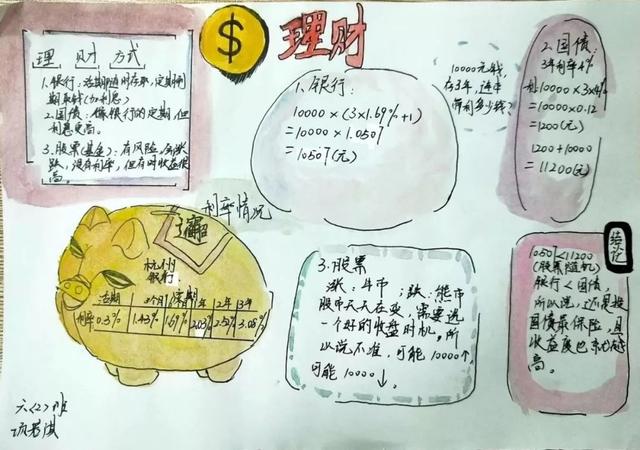 理财
理 财 方式
1.银行:活期随时存取,定期到
期取钱(加利息)
2.国债:像银行的定期,但
利息更高。
3.股票(基金):有风险,会涨
跌,没有利率,但有时收益很
高。
1、银行:
10000×(3×1.69%+1)
=10000×1.0507
=10507(元)
10000元钱,
存3年,连本
带利多少钱、
2.国债:
3年利率4%
利 10000×3×4%
=10000×0.12
=1200(元)
1200+10000
=11200(元)
利率情况
杭州
银行
活期 3个月 1年 2年 3年
利率 0.3% 1.43% 1.69% 2.03% 2.52% 3.08%
3.股票
涨:牛市 ;跌:熊市
股市天天在变,需要选
一个好的收盘时机。所
以说不准,可能10000↑,
可能10000↓。
结论
10507<11200
(股票随机)
银行<国债,
所以说,还是买
国债最保险,且
收益度也
高。
六(2)班